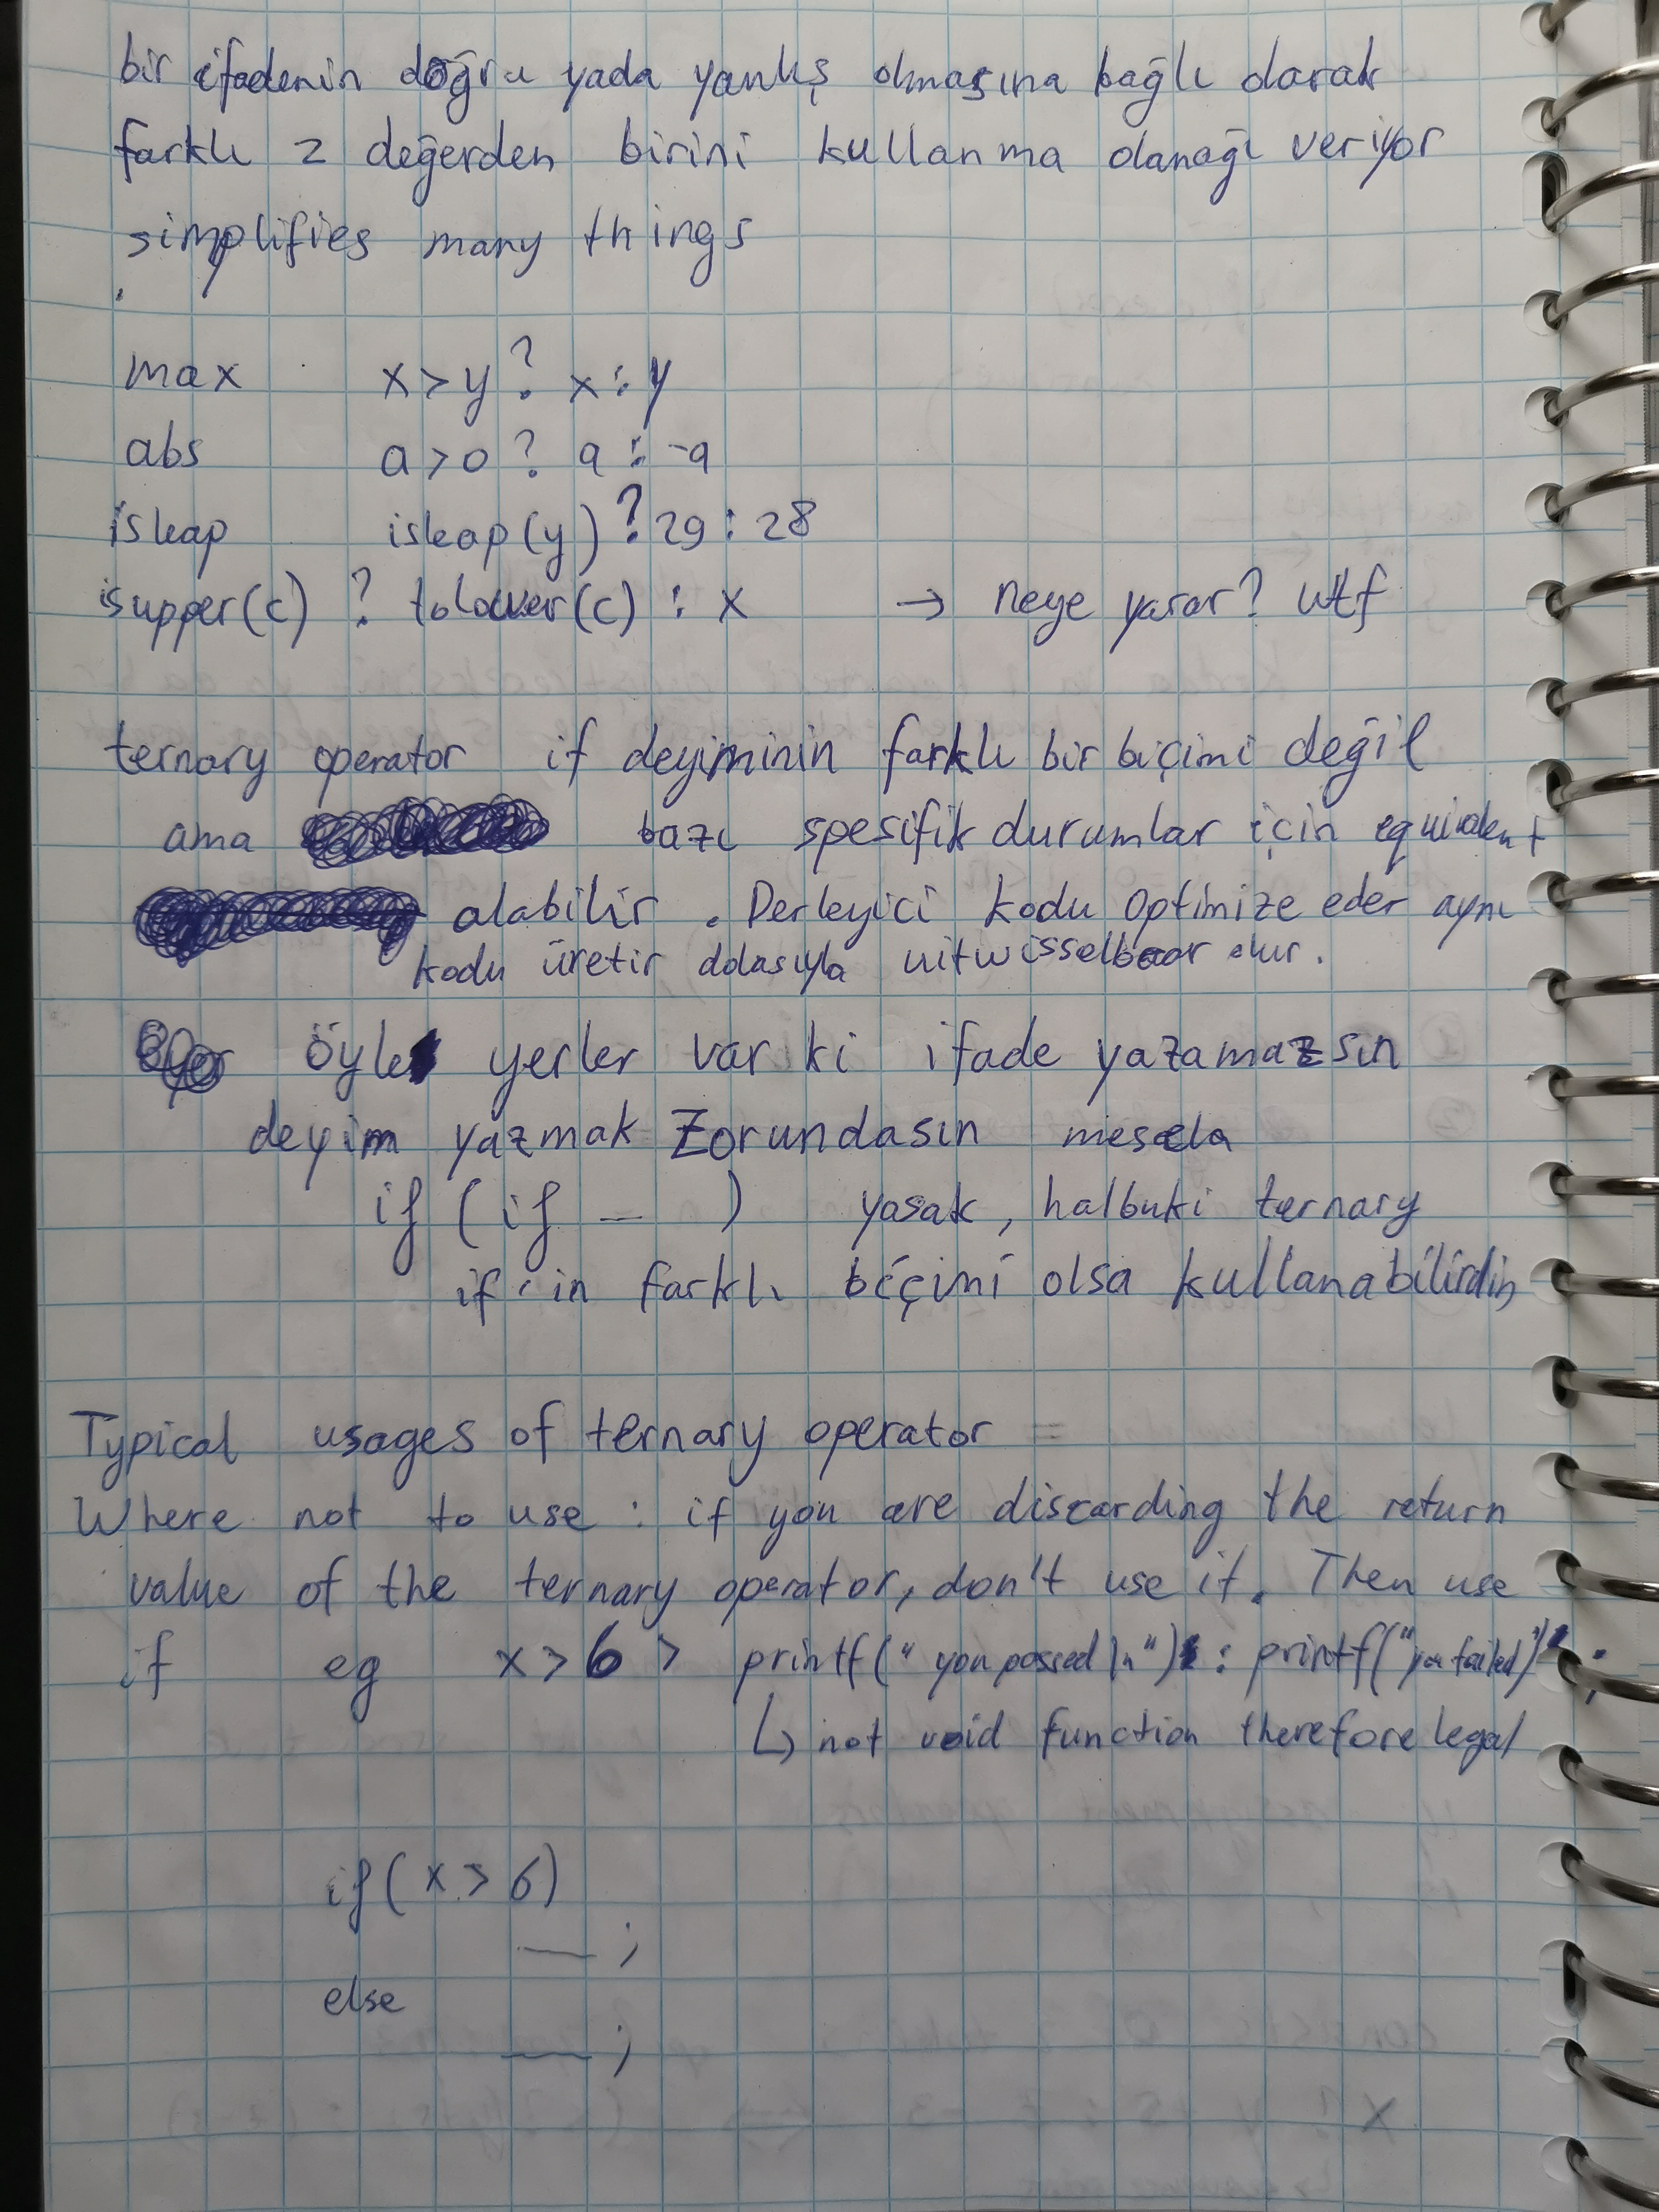 bir ifadenin doğru yada yanlış olmasına bağlı olarak
farklı 2 değerden birini kullanma olanağı veriyor
simplifies many things
max x>y ? x : y
abs a>0 ? a : -a
isleap isleap(y) ? 29 : 28
isupper(c) ? tolower(c) : x → neye yarar? wtf
ternary operator if deyiminin farklı bir biçimi değil
ama bazı spesifik durumlar için equivalent
alabilir. Derleyici kodu optimize eder aynı
kodu üretir dolasıyla uitwisselbaar olur.
öyle yerler var ki ifade yazamazsın
deyim yazmak zorundasın mesela
if ( if — ) yasak, halbuki ternary
if'in farklı biçimi olsa kullanabilirdin
Typical usages of ternary operator =
Where not to use : if you are discarding the return
value of the ternary operator, don't use it. Then use
if eg x>6 > printf("you passed \n") : printf("you failed") ;
↳ not void function therefore legal
if( x > 6)
— ;
else
— ;